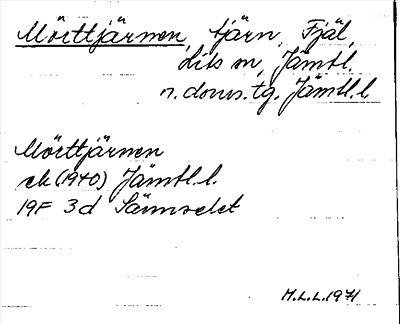 Mörttjärnen, tjärn, Fjäl,
Lits sn, Jämtl.
n. doms. tg. Jämtl. l.
Mörttjärnen
ek (1940) Jämtl. l.
19F 3d Sännselet
M.L.L. 1971